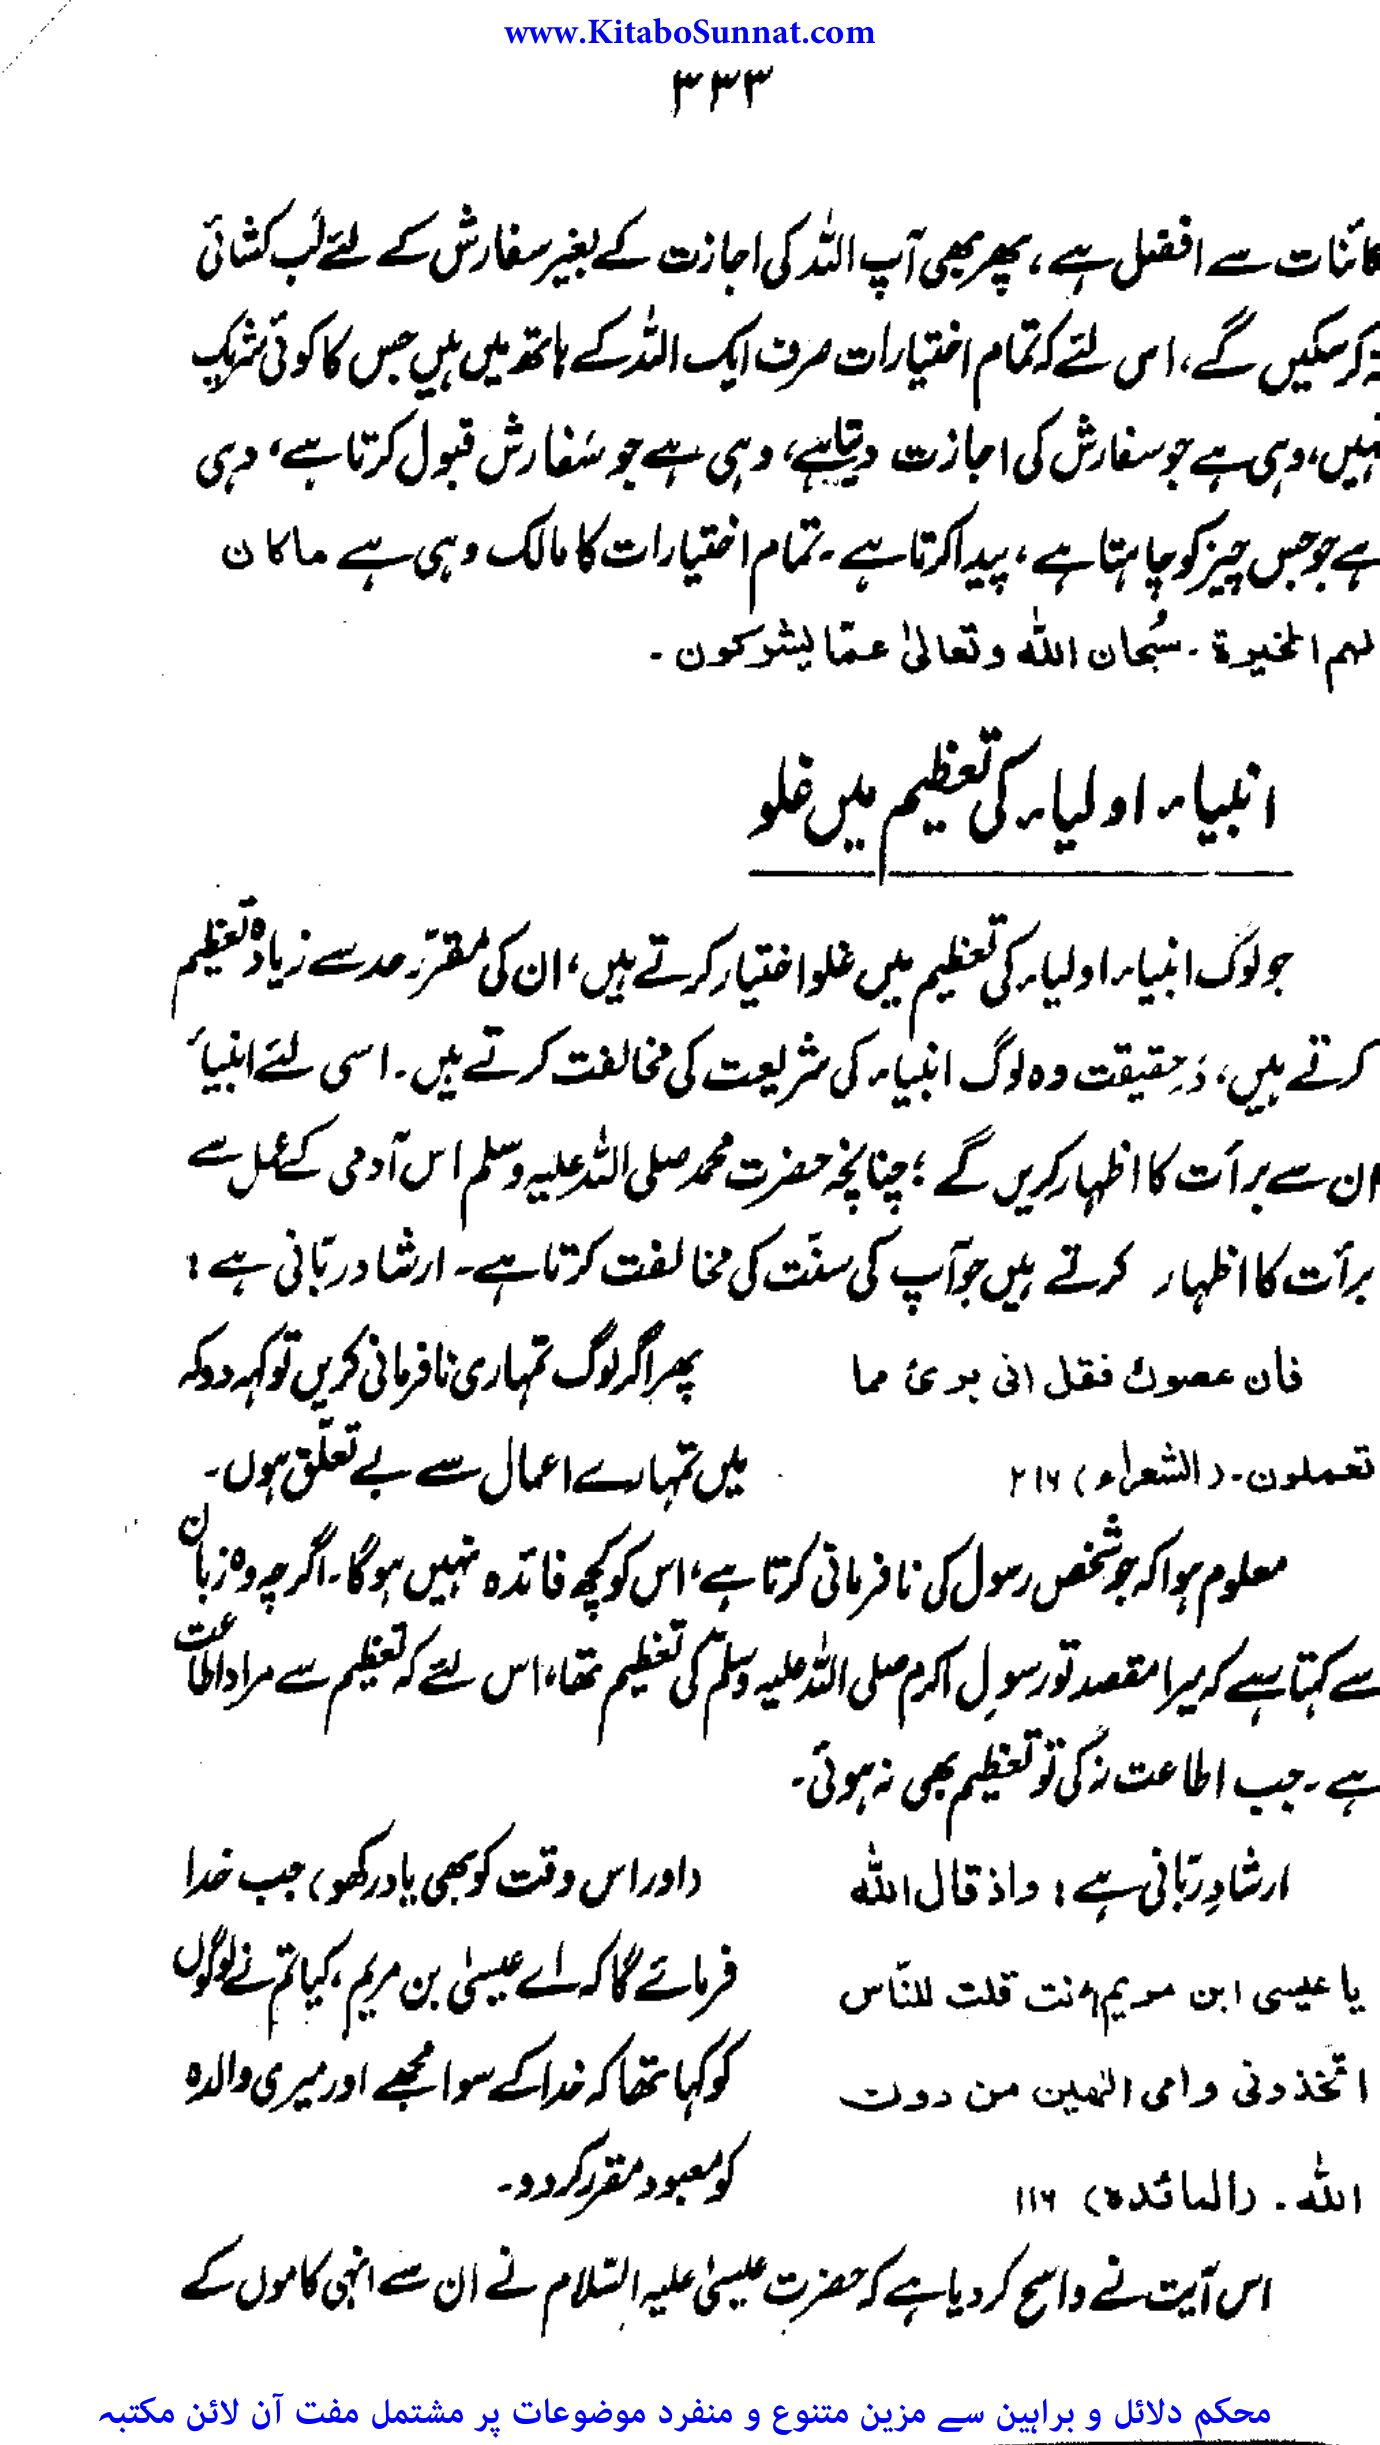 www.KitaboSunnat.com
۳۳۳
کائنات سے افضل ہے، پھر بھی آپ اللہ کی اجازت کے بغیر سفارش کے لئے لب کشائی
نہ کر سکیں گے، اس لئے کہ تمام اختیارات صرف ایک اللہ کے ہاتھ میں ہیں جس کا کوئی شریک
نہیں، وہی ہے جو سفارش کی اجازت دیتا ہے، وہی ہے جو سفارش قبول کرتا ہے، وہی
ہے جو جس چیز کو چاہتا ہے، پیدا کرتا ہے۔ تمام اختیارات کا مالک وہی ہے ماکان
لہم الخیرۃ۔ سُبحان اللہ وتعالیٰ عمّا یشرکون۔
انبیاء، اولیاء کی تعظیم میں غلو
جو لوگ انبیاء، اولیاء کی تعظیم میں غلو اختیار کرتے ہیں، ان کی مقررّ حد سے زیادہ تعظیم
کرتے ہیں، دَرحقیقت وہ لوگ انبیاء کی شریعت کی مخالفت کرتے ہیں۔ اسی لئے انبیاءؑ
ان سے برأت کا اظہار کریں گے؛ چنانچہ حضرت محمد صلی اللہ علیہ وسلم اس آدمی کے عمل سے
برأت کا اظہار کرتے ہیں جو آپ کی سنّت کی مخالفت کرتا ہے۔ ارشاد ربّانی ہے:
فان عصوك فقل انی بریٔ مما پھر اگر لوگ تمہاری نافرمانی کریں تو کہہ دو کہ
تعملون۔ (الشعراء) ۲۱۶ میں تمہارے اعمال سے بے تعلّق ہوں۔
معلوم ہوا کہ جو شخص رسول کی نافرمانی کرتا ہے، اس کو کچھ فائدہ نہیں ہوگا۔ اگرچہ وہ زبان
سے کہتا ہے کہ میرا مقصد تو رسولِ اکرم صلی اللہ علیہ وسلّم کی تعظیم تھا، اس لئے کہ تعظیم سے مراد اطاعت
ہے۔ جب اطاعت نہ کی تو تعظیم بھی نہ ہوئی۔
ارشادِ ربّانی ہے: واذ قال اللہ (اور اس وقت کو بھی یاد رکھو) جب خدا
یا عیسی ابن مریم ءانت قلت للنّاس فرمائے گا کہ اے عیسیٰ بن مریم، کیا تم نے لوگوں
اتّخذونی وامی الٰہین من دون کو کہا تھا کہ خدا کے سوا مجھے اور میری والدہ
اللہ۔ (المائدہ) ۱۱۶ کو معبود مقرر کر دو۔
اس آیت نے واضح کر دیا ہے کہ حضرت عیسیٰ علیہ السّلام نے ان سے انہی کاموں کے
محکم دلائل و براہین سے مزین متنوع و منفرد موضوعات پر مشتمل مفت آن لائن مکتبہ